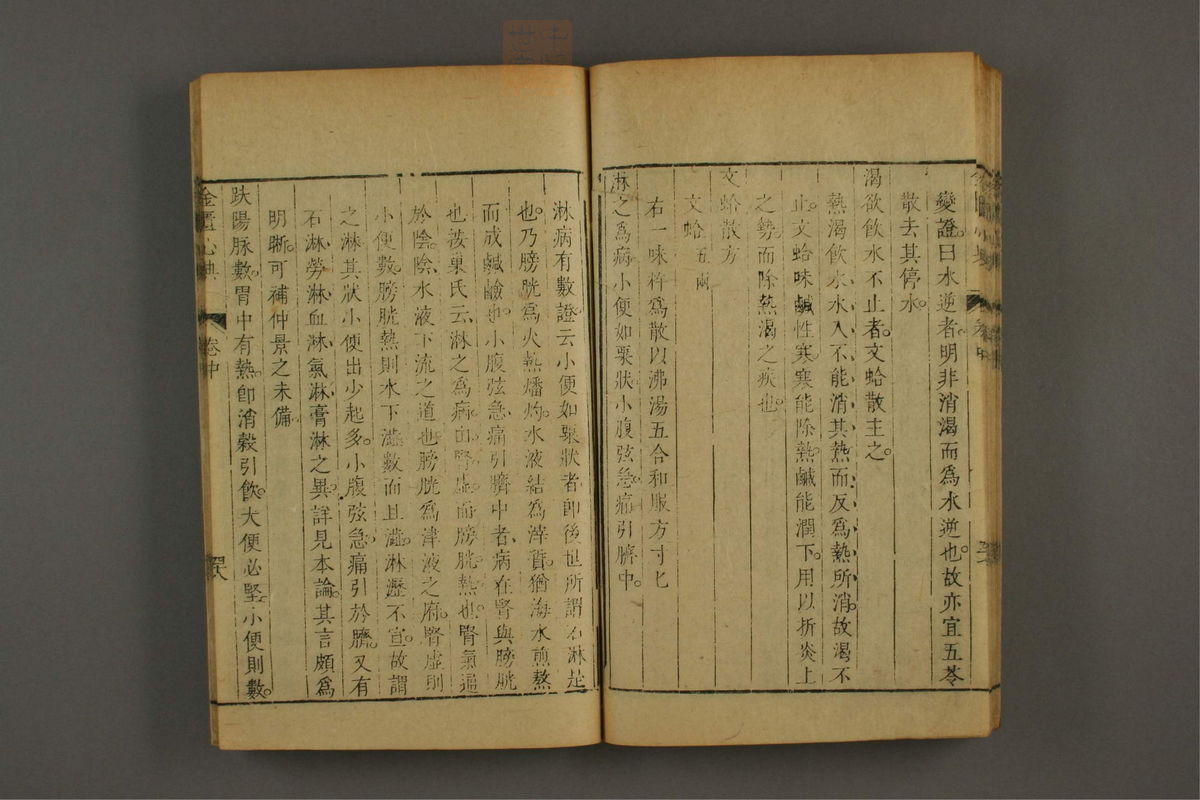 變證曰水逆者明非消渴而爲水逆也故亦宜五苓
散去其停水
渴欲飲水不止者文蛤散主之
熱渴飲水水入不能消其熱而反爲熱所消故渴不
止文蛤味鹹性寒寒能除熱鹹能潤下用以折炎上
之勢而除熱渴之疾也
文蛤散方
文蛤五兩
右一味杵爲散以沸湯五合和服方寸匕
淋之爲病小便如粟狀小腹弦急痛引臍中
淋病有數證云小便如粟狀者卽後世所謂石淋是
也乃膀胱爲火熱燔灼水液結爲滓質猶海水煎熬
而成鹹鹼也小腹弦急痛引臍中者病在腎與膀胱
也按巢氏云淋之爲病由腎虛而膀胱熱也腎氣通
於陰陰水液下流之道也膀胱爲津液之府腎虛則
小便數膀胱熱則水下澁數而且澁淋瀝不宣故謂
之淋其狀小便出少起多小腹弦急痛引於臍又有
石淋勞淋血淋氣淋膏淋之異詳見本論其言頗爲
明晰可補仲景之未備
趺陽脉數胃中有熱卽消穀引飲大便必堅小便則數
金匱心典
卷中